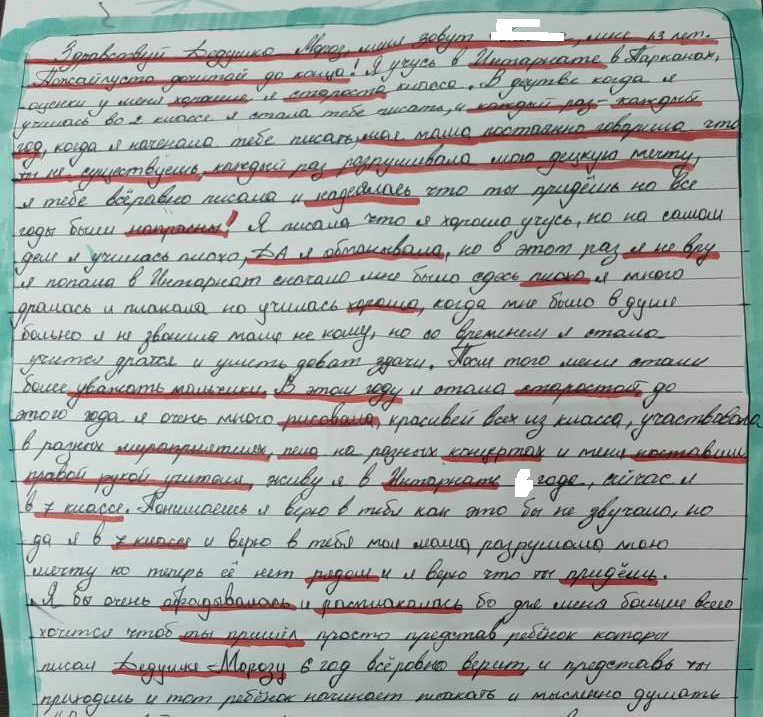 Здравствуй Дедушка Мороз, меня зовут , мне 13 лет.
Пожайлуста дочитай до конца! Я учусь в Интарнате в Парканах,
оценки у меня хорошие я староста класса. В децтве когда я
училась во 2 классе я стала тебе писать, и каждый раз- каждый
год, когда я начинала тебе писать, моя мама постоянно говорила что
ты не существуешь, каждый раз разрушивала мою децкую мечту,
я тебе всёравно писала и надеялась что ты придёшь но все
годы были напрасны! Я писала что я хорошо учусь, но на самом
деле я училась плохо, ДА я обманывала, но в этот раз я не вру
я попала в Интарнат сначало мне было сдесь плохо я много
дралась и плакала но училась хорошо, когда мне было в душе
больно я не звонила маме не кому, но со временем я стала
учится дратся и уметь доват здачи. После того меня стали
более уважать мальчики. В этом году я стала старостой до
этого года я очень много рисовала, красивей всех из класса, участвовала
в разных мероприятиях, пела на разных концертах и меня поставили
правой рукой учителя, живу я в Интарнате года, сейчас я
в 7 классе. Понимаешь я верю в тебя как это бы не звучало, но
да я в 7 классе и верю в тебя моя мама разрушала мою
мечту но теперь её нет рядом и я верю что ты придёшь.
Я бы очень обрадывалась и расплакалась бо для меня больше всего
хочется чтоб ты пришёл просто представ ребёнок которы
писал Дедушке Морозу 6 год всёровно верит, и представь ты
приходишь и тот ребёнок начинает плакать и мысленно думать